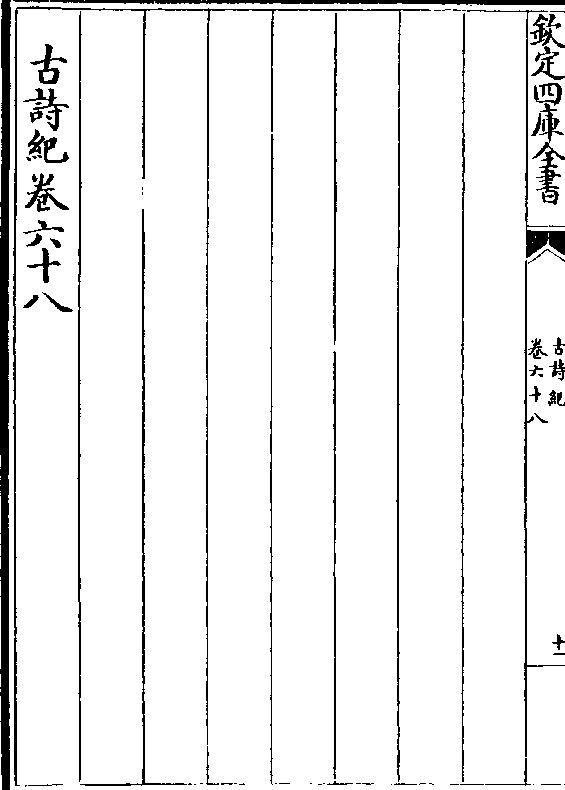 欽定四庫全書
古詩紀
卷六十八
十一
古詩紀卷六十八